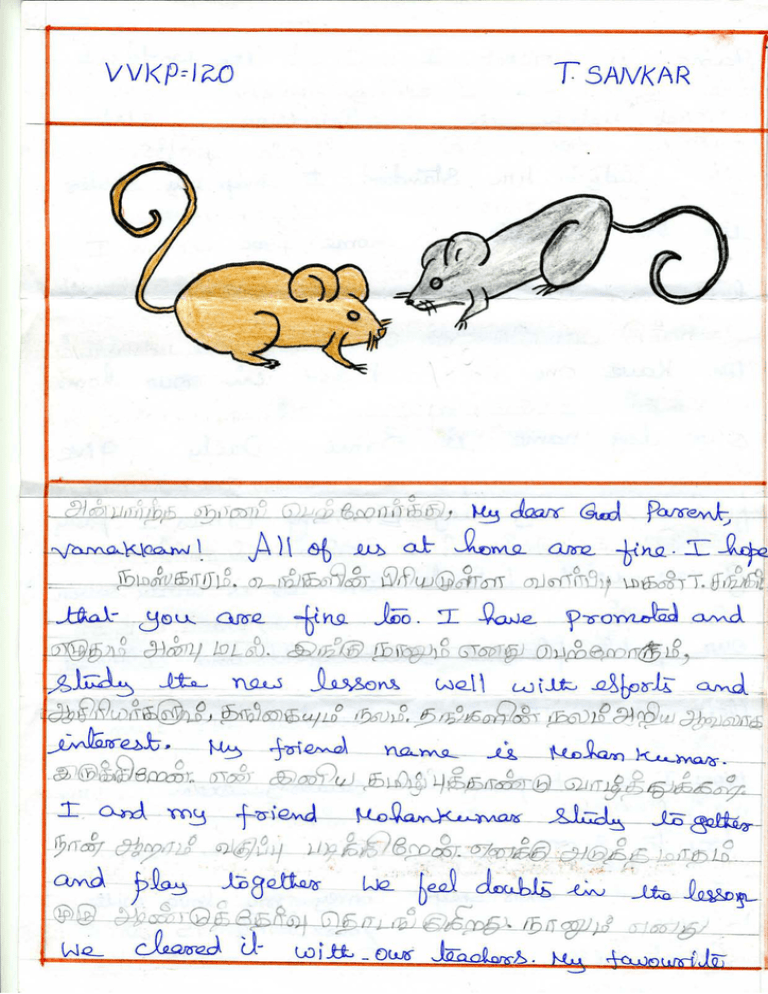 VVKP=120 T. SANKAR
அன்பார்ந்த ஞானப் பெற்றோர்க்கு, My dear God Parent,
vanakkam! All of us at home are fine. I hope
நமஸ்காரம். உங்களின் பிரியமுள்ள வளர்ப்பு மகன் T. சங்கர்
that you are fine too. I have promoted and
எழுதும் அன்பு மடல். இங்கு நானும் எனது பெற்றோரும்,
study the new lessons well with efforts and
ஆசிரியர்களும், தங்கையும் நலம். தங்களின் நலம் அறிய ஆவலாக
interest. My friend name is Mohan Kumar.
இருக்கிறேன். என் இனிய தமிழ் புத்தாண்டு வாழ்த்துக்கள்.
I and my friend Mohankumar study together
நான் ஆறாம் வகுப்பு படிக்கிறேன். எனக்கு அடுத்த மாதம்
and play together we feel doubts in the lesson
முழு ஆண்டுத்தேர்வு தொடங்குகிறது. நானும் எனது
we cleared it with our teachers. My favourite